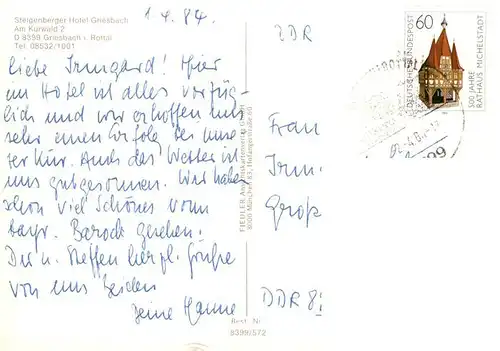 Steigenberger Hotel Griesbach
Am Kurwald 2
D 8399 Griesbach i. Rottal
Tel. 08532/1001
1.4.84.
Liebe Irmgard! Hier
im Hotel ist alles vorzüg-
lich und wir erhoffen uns
sehr einen Erfolg der unse
rer Kur. Auch das Wetter ist
uns gutgesonnen. Wir haben
schon viel Schönes vom
bayr. Barock gesehen.
Dir u. Steffen herzl. Grüße
von uns beiden
Deine Hanne
FIEDLER
8000 München 83
Best. Nr.
8399/572
DDR
Frau
Irm.
Grop
DDR 8
60
DEUTSCHE BUNDESPOST
500 JAHRE
RATHAUS MICHELSTADT